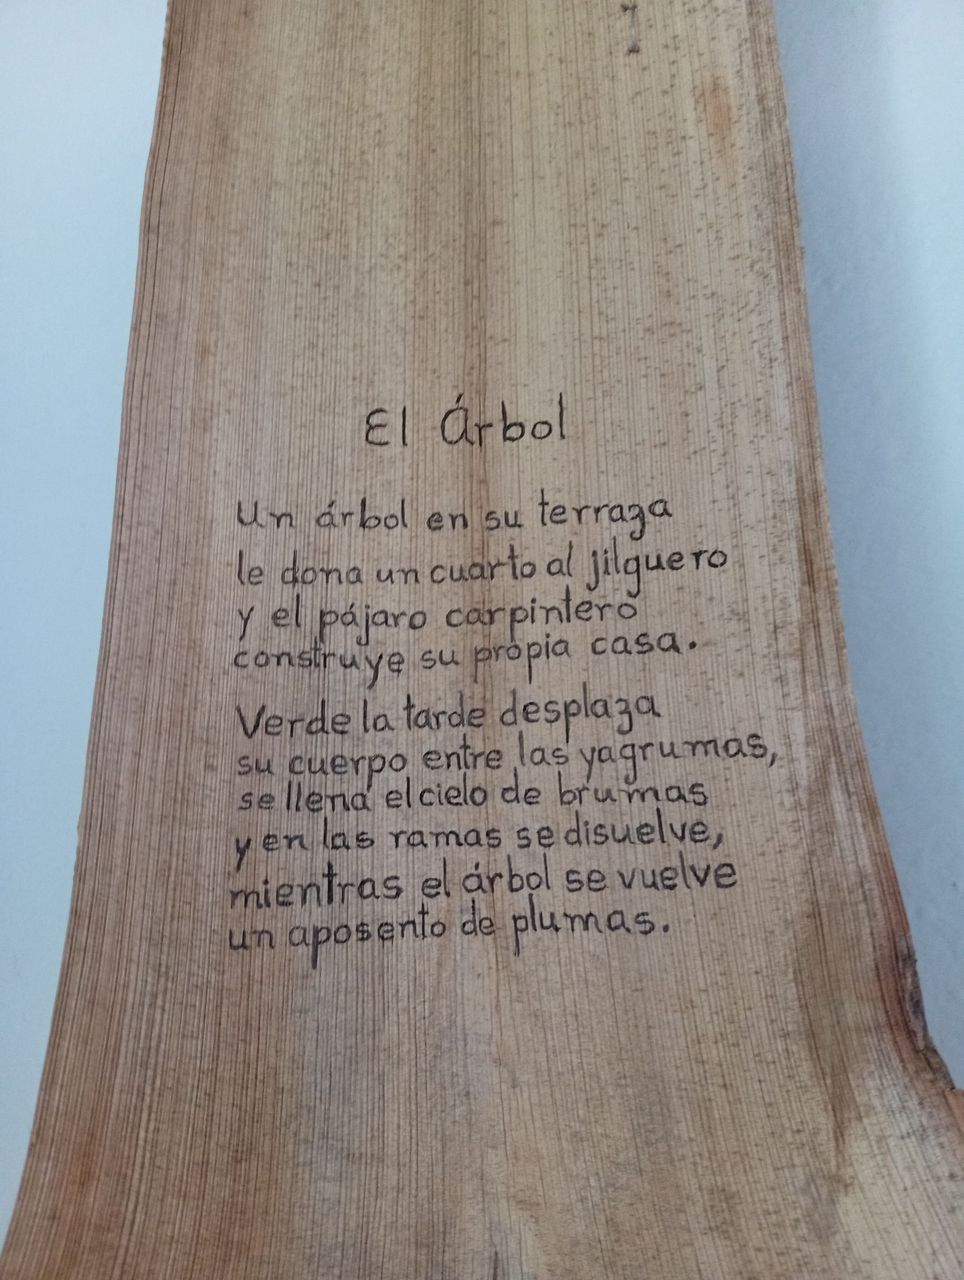 El Árbol
Un árbol en su terraza
le dona un cuarto al jilguero
y el pájaro carpintero
construye su propia casa.
Verde la tarde desplaza
su cuerpo entre las yagrumas,
se llena el cielo de brumas
y en las ramas se disuelve,
mientras el árbol se vuelve
un aposento de plumas.